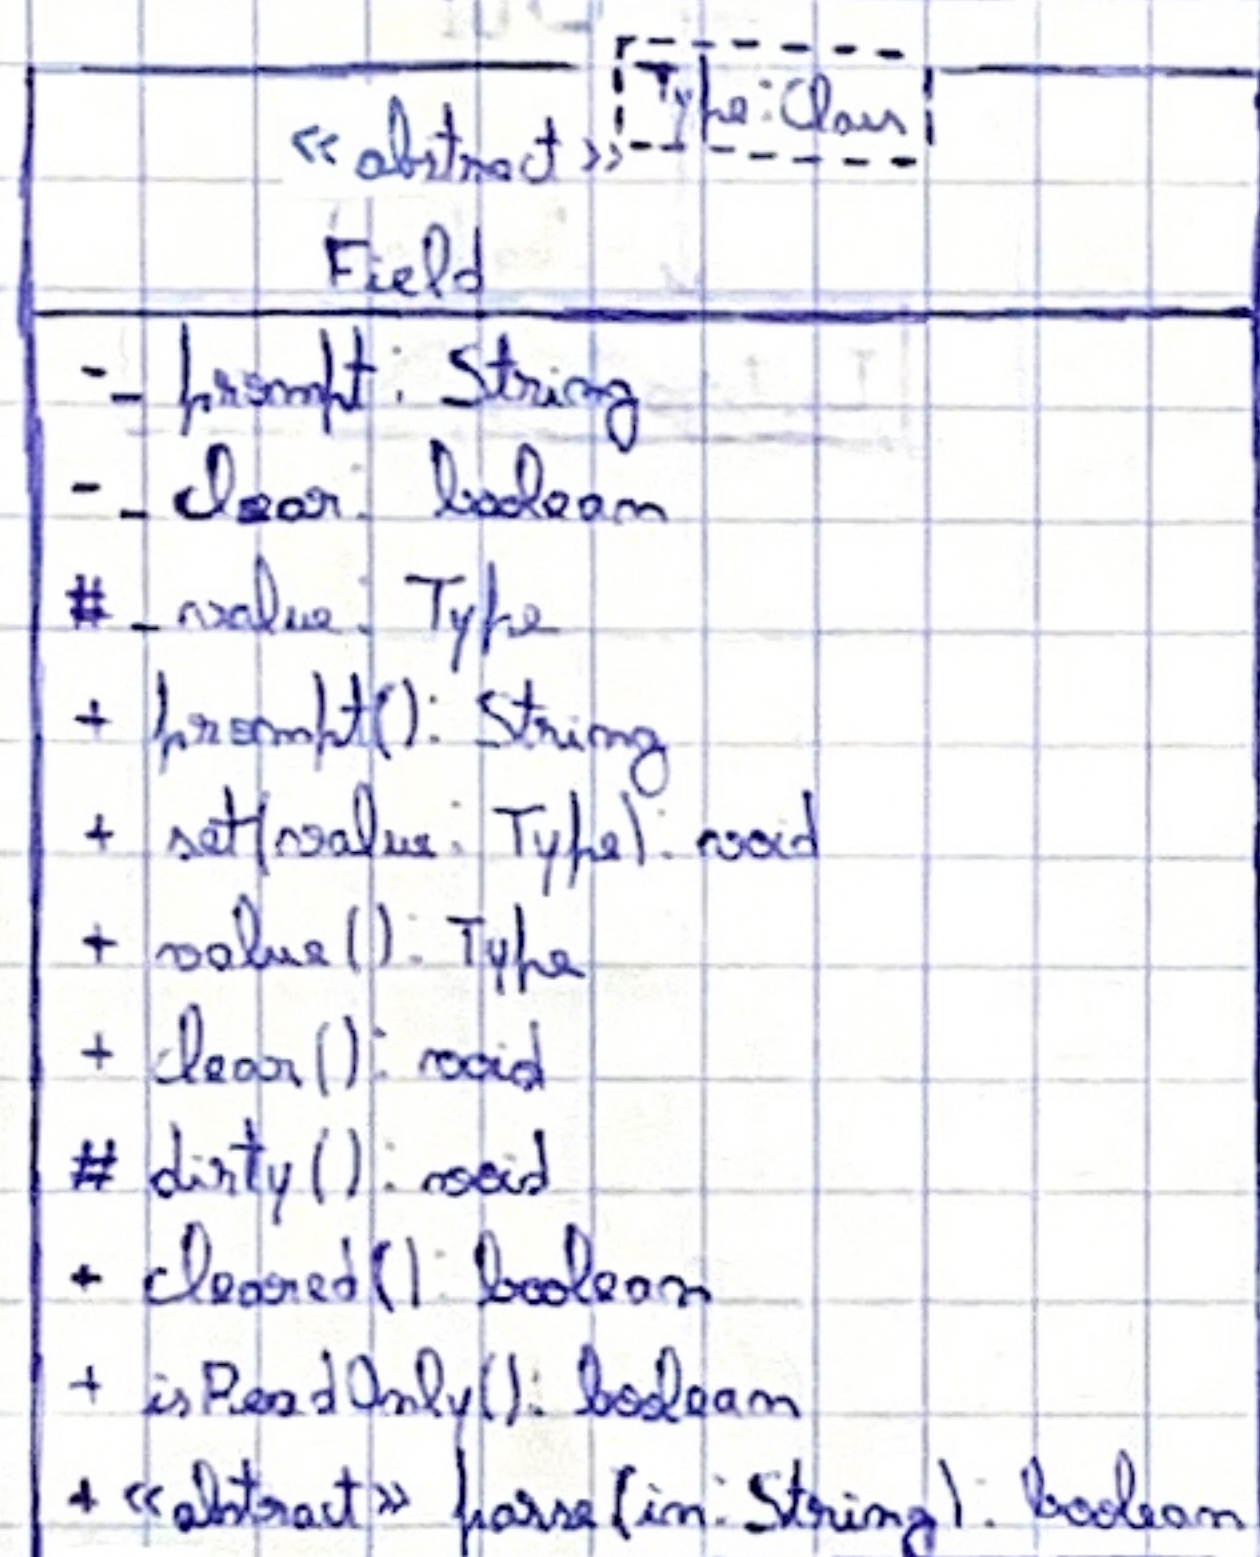 Type: Class
«abstract»
Field
- _prompt: String
- _clear: boolean
# _value: Type
+ prompt(): String
+ set(value: Type): void
+ value(): Type
+ clear(): void
# dirty(): void
+ cleared(): boolean
+ isReadOnly(): boolean
+ «abstract» parse(in: String): boolean